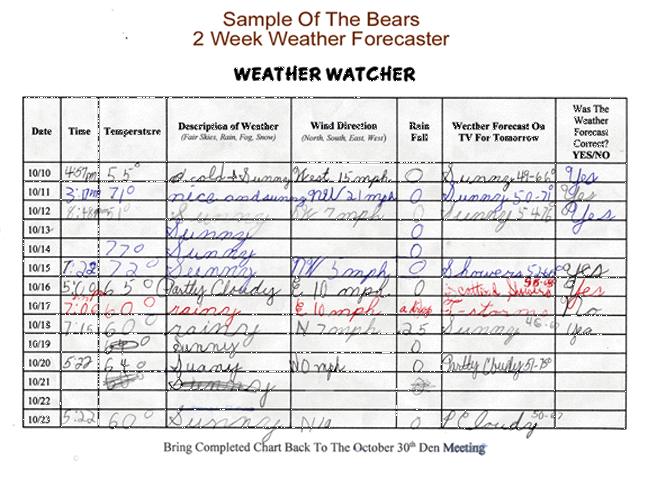 Sample Of The Bears
2 Week Weather Forecaster
WEATHER WATCHER
Date Time Temperature Description of Weather (Fair Skies, Rain, Fog, Snow) Wind Direction (North, South, East, West) Rain Fall Weather Forecast On TV For Tomorrow Was The Weather Forecast Correct? YES/NO
10/10 4:57pm 55° cold & Sunny West 15 mph 0 Sunny 49-66° Yes
10/11 3:17pm 71° nice and sunny NW 21 mph 0 Sunny 50-71° Yes
10/12 8:48pm 51° Sunny 7 mph 0 Sunny Yes
10/13 Sunny 0
10/14 77° Sunny 0
10/15 7:22 72° Sunny NW 5 mph 0 Showers Yes
10/16 65° Partly Cloudy E 10 mph 0 Scattered Showers Yes
10/17 7:00 60° rainy E 10 mph T-storms No
10/18 7:15 60° rainy N 7 mph 25 Sunny Yea
10/19 Sunny 0
10/20 5:22 64° Sunny N 0 mph 0 Partly Cloudy 51-75°
10/21
10/22
10/23 5:22 60° Sunny N/a 0 P Cloudy
Bring Completed Chart Back To The October 30th Den Meeting